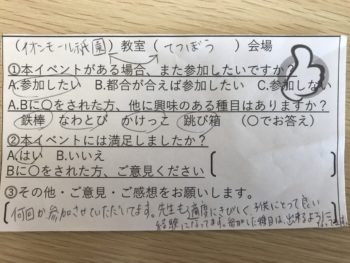 (イオンモール祇園)教室(てつぼう)会場
①本イベントがある場合、また参加したいですか?
A.参加したい B.都合が合えば参加したい C.参加しない
A.Bに〇をされた方、他に興味のある種目はありますか?
鉄棒 なわとび かけっこ 跳び箱 (〇でお答え)
②本イベントには満足しましたか?
A.はい B.いいえ
Bに〇をされた方、ご意見ください
③その他・ご意見・ご感想をお願いします。
何回か参加させていただいてます。先生も適度にきびしく、子供にとって良い
経験になってます。参加した種目は、出来るように